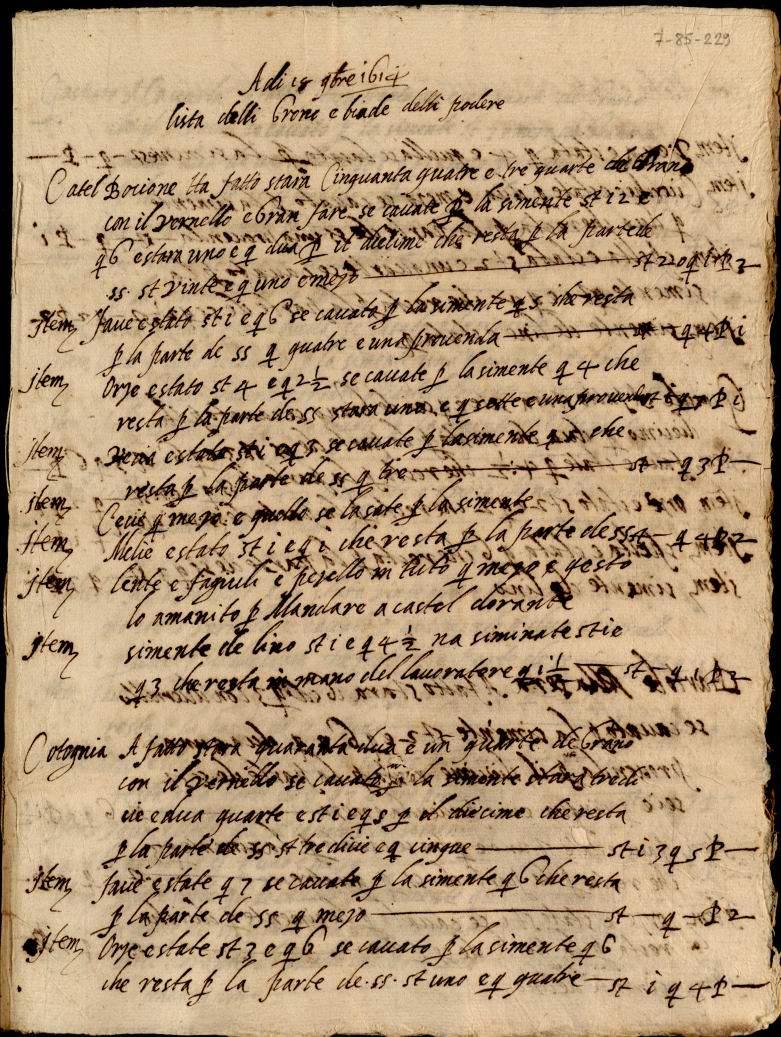 7-85-229
Adi 18 9bre 1614
lista delli Grone e biade delli podere
Catel Bocione Ha fatto stara Cinquanta quatre e tre quarte de Grano
con il vernello e Gran fare se cavate p la simente st 12 e
q 6 e stara uno e q dua p il diecimo che resta p la parte de
ss. st vinte e q uno e mezo st 20 q 1 P 2
Jtem fave e stato st i e q 6 se cavato p la simente q 5 che resta
p la parte de ss q quatre e una provenda st q 4 P i
jtem Orze estato st 4 e q 2 ½ se cavate p la simente q 4 che
resta p la parte de ss stara uno e q sette e una provenda st i q 7 P i
Jtem Vena e stata st i e q 3 se cavate p la simente q che
resta p la parte de ss q tre st — q 3 P —
jtem Cece q mezo e quello se lasate p la simente
jtem Melie estato st i e q i che resta p la parte de ss st — q 4 P 2
jtem lente e fagiuli e pesello in tuto q mezo e questo
lo amanito p Mandare a castel dorante
jtem simente de lino st i e q 4 ½ na siminate st i e
q 3 che resta in mano del lavoratore q i ½ st — q i P 3
Cotognia A fatto stara quaranta dua e un quarte de Grano
con il vernello se cavato p la simente stara tredi
cie e dua quarte e st i e q 5 p il diecime che resta
p la parte de ss st tredicie e q cinque st i 3 q 5 P —
jtem fave estate q 7 se cavate p la simente q 6 che resta
p la parte de ss q mezo st — q — P 2
Jtem Orze estate st 3 e q 6 se cavato p la simente q 6
che resta p la parte de ss. st uno e q quatre st i q 4 P —